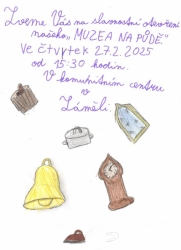 Zveme Vás na slavnostní otevření
našeho „MUZEA NA PŮDĚ“
Ve čtvrtek 27.2.2025
od 15:30 hodin.
V komunitním centru
v
Záměli.